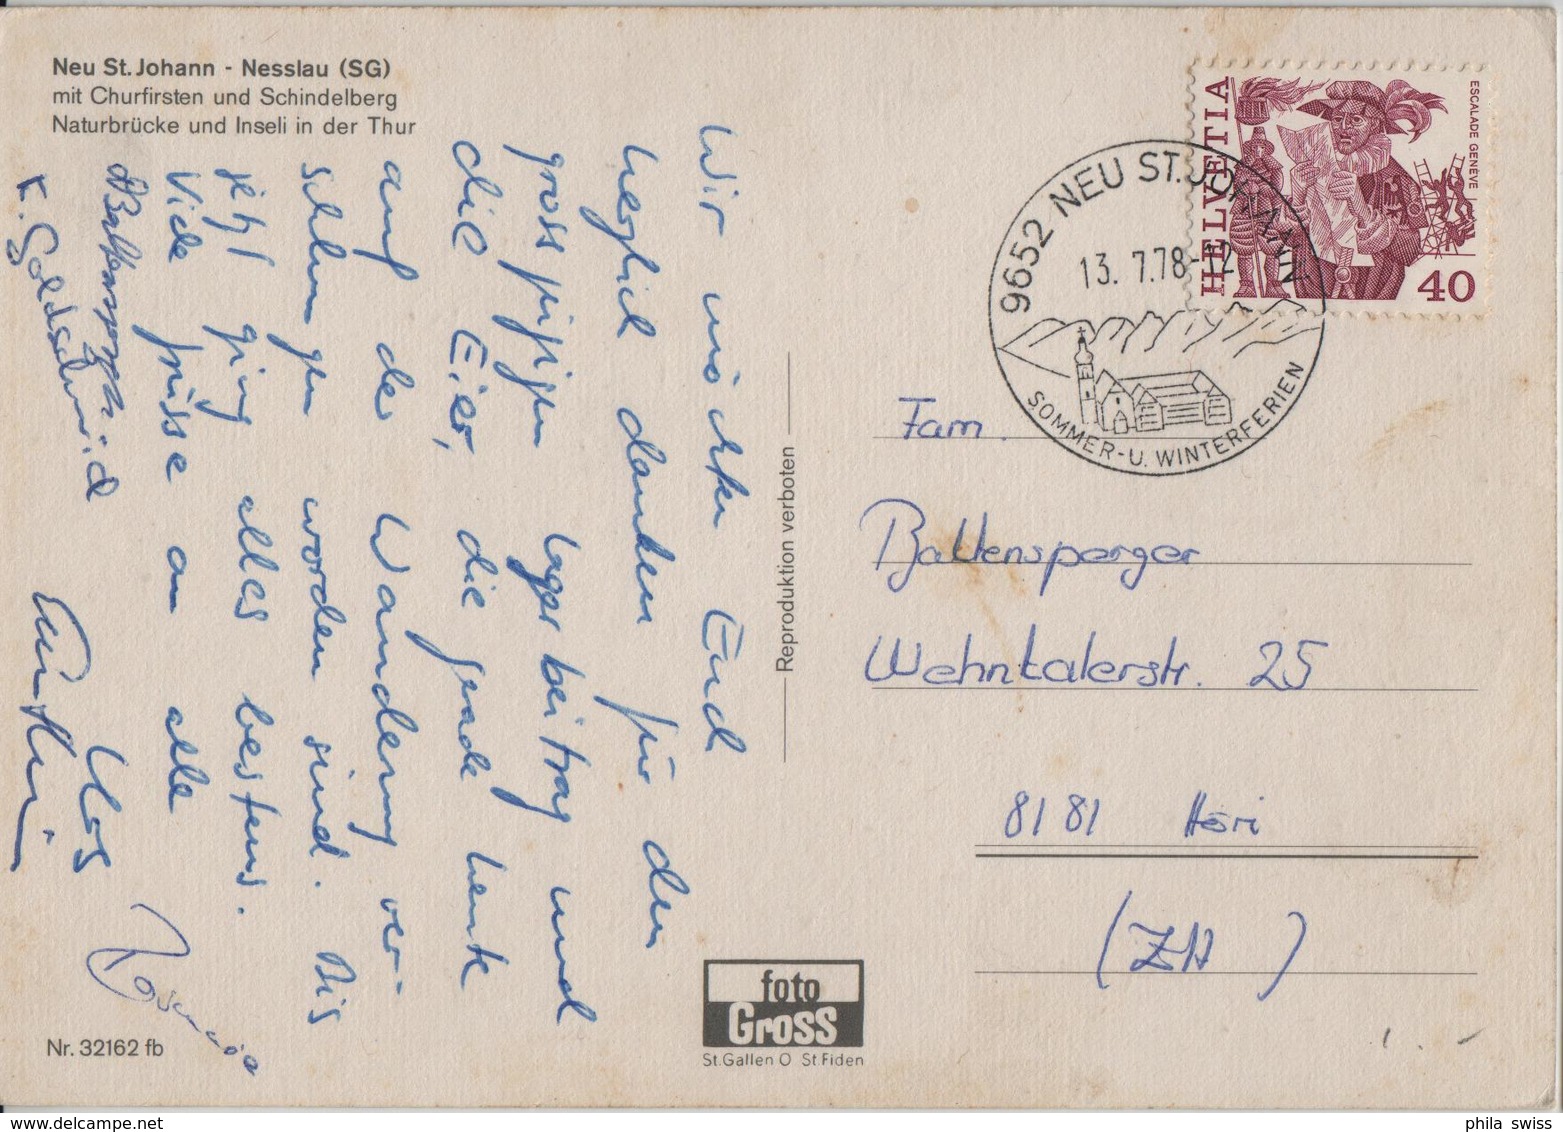 Neu St. Johann - Nesslau (SG)
mit Churfirsten und Schindelberg
Naturbrücke und Inseli in der Thur
Wir möchten Euch
herzlich danken für den
grosszügigen Lagerbeitrag und
die Eier, die gerade heute
auf der Wanderung ver-
schlungen worden sind. Bis
jetzt ging alles bestens.
Viele Grüsse an alle
Urs
K. Goldschmid
Reproduktion verboten
HELVETIA
ESCALADE GENEVE
40
9652 NEU ST. JOHANN
13. 7.78-12
SOMMER-U. WINTERFERIEN
Fam.
Baltensperger
Wehntalerstr. 25
8181 Höri
(ZH)
foto
GROSS
St.Gallen O St.Fiden
Nr. 32162 fb
phila swiss